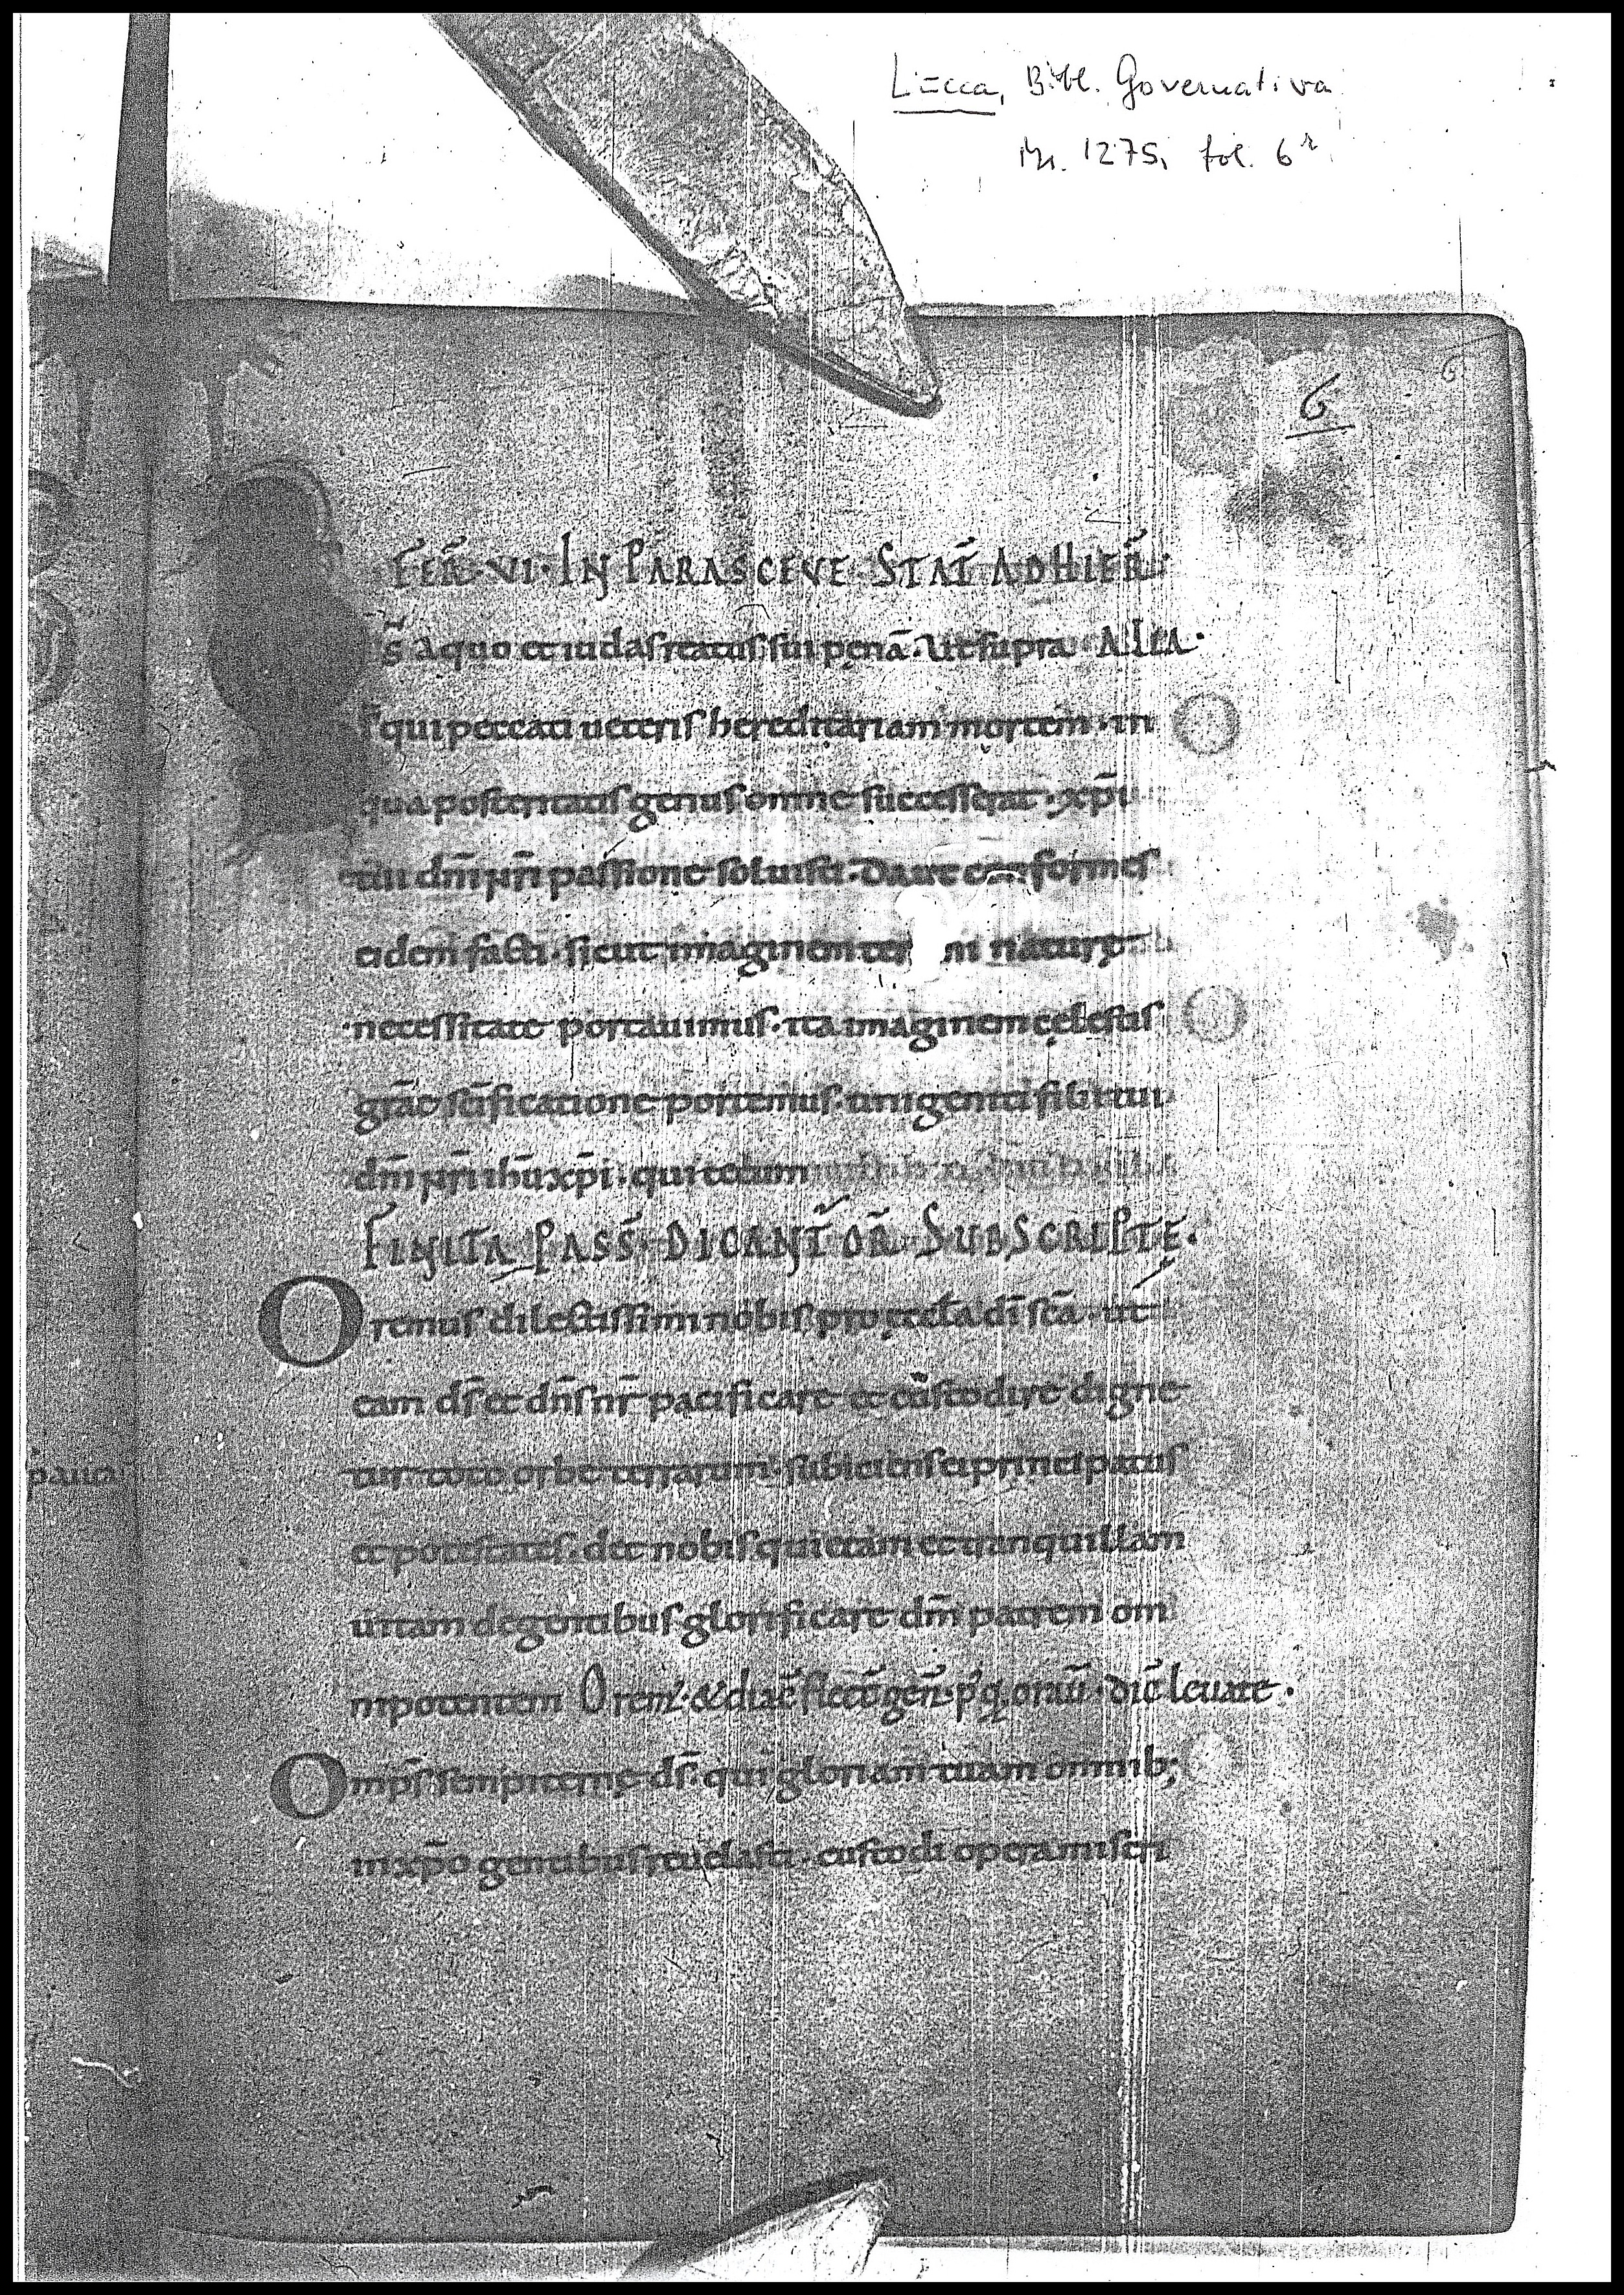 Lucca, Bibl. Governativa
Nr. 1275, fol. 6r
6
6
FER̄·VI·IN PARASCEVE STAT̄ ADHIER̄·
s̄ aquo et iudas reatus sui penā. Ut supra ALIA·
qui peccati ueteris hereditariam mortem· in
qua posteritatis genus omne successerat· xp̄i
tui dn̄i nr̄i passione soluisti. Da ut conformes
eidem facti. sicut imaginem ter ni naturę
necessitate portauimus· ita imaginem cęlestis
grāe sc̄ificatione portemus. unigeniti filii tui
dn̄i nr̄i ihū xp̄i. qui tecum
FINITA PASS̄· DICANT̄ OR̄ SUBSCRIPTĘ.
Oremus dilectissimi nobis pro ęccl̄a dī sc̄a· ut
eam ds̄ et dn̄s nr̄ pacificare et custodire digne
tur toto orbe terrarum· subiciens ei principatus
et potestates. det nobis quietam et tranquillam
uitam degentibus glorificare dm̄ patrem om
nipotentem Orem̄· & diac̄ flectā gen̄· p'q oraū· dic̄ leuate.
Omps̄ sempiternę ds̄· qui gloriam tuam omnib;
in xp̄o gentibus reuelasti. custodi opera miseri
paua